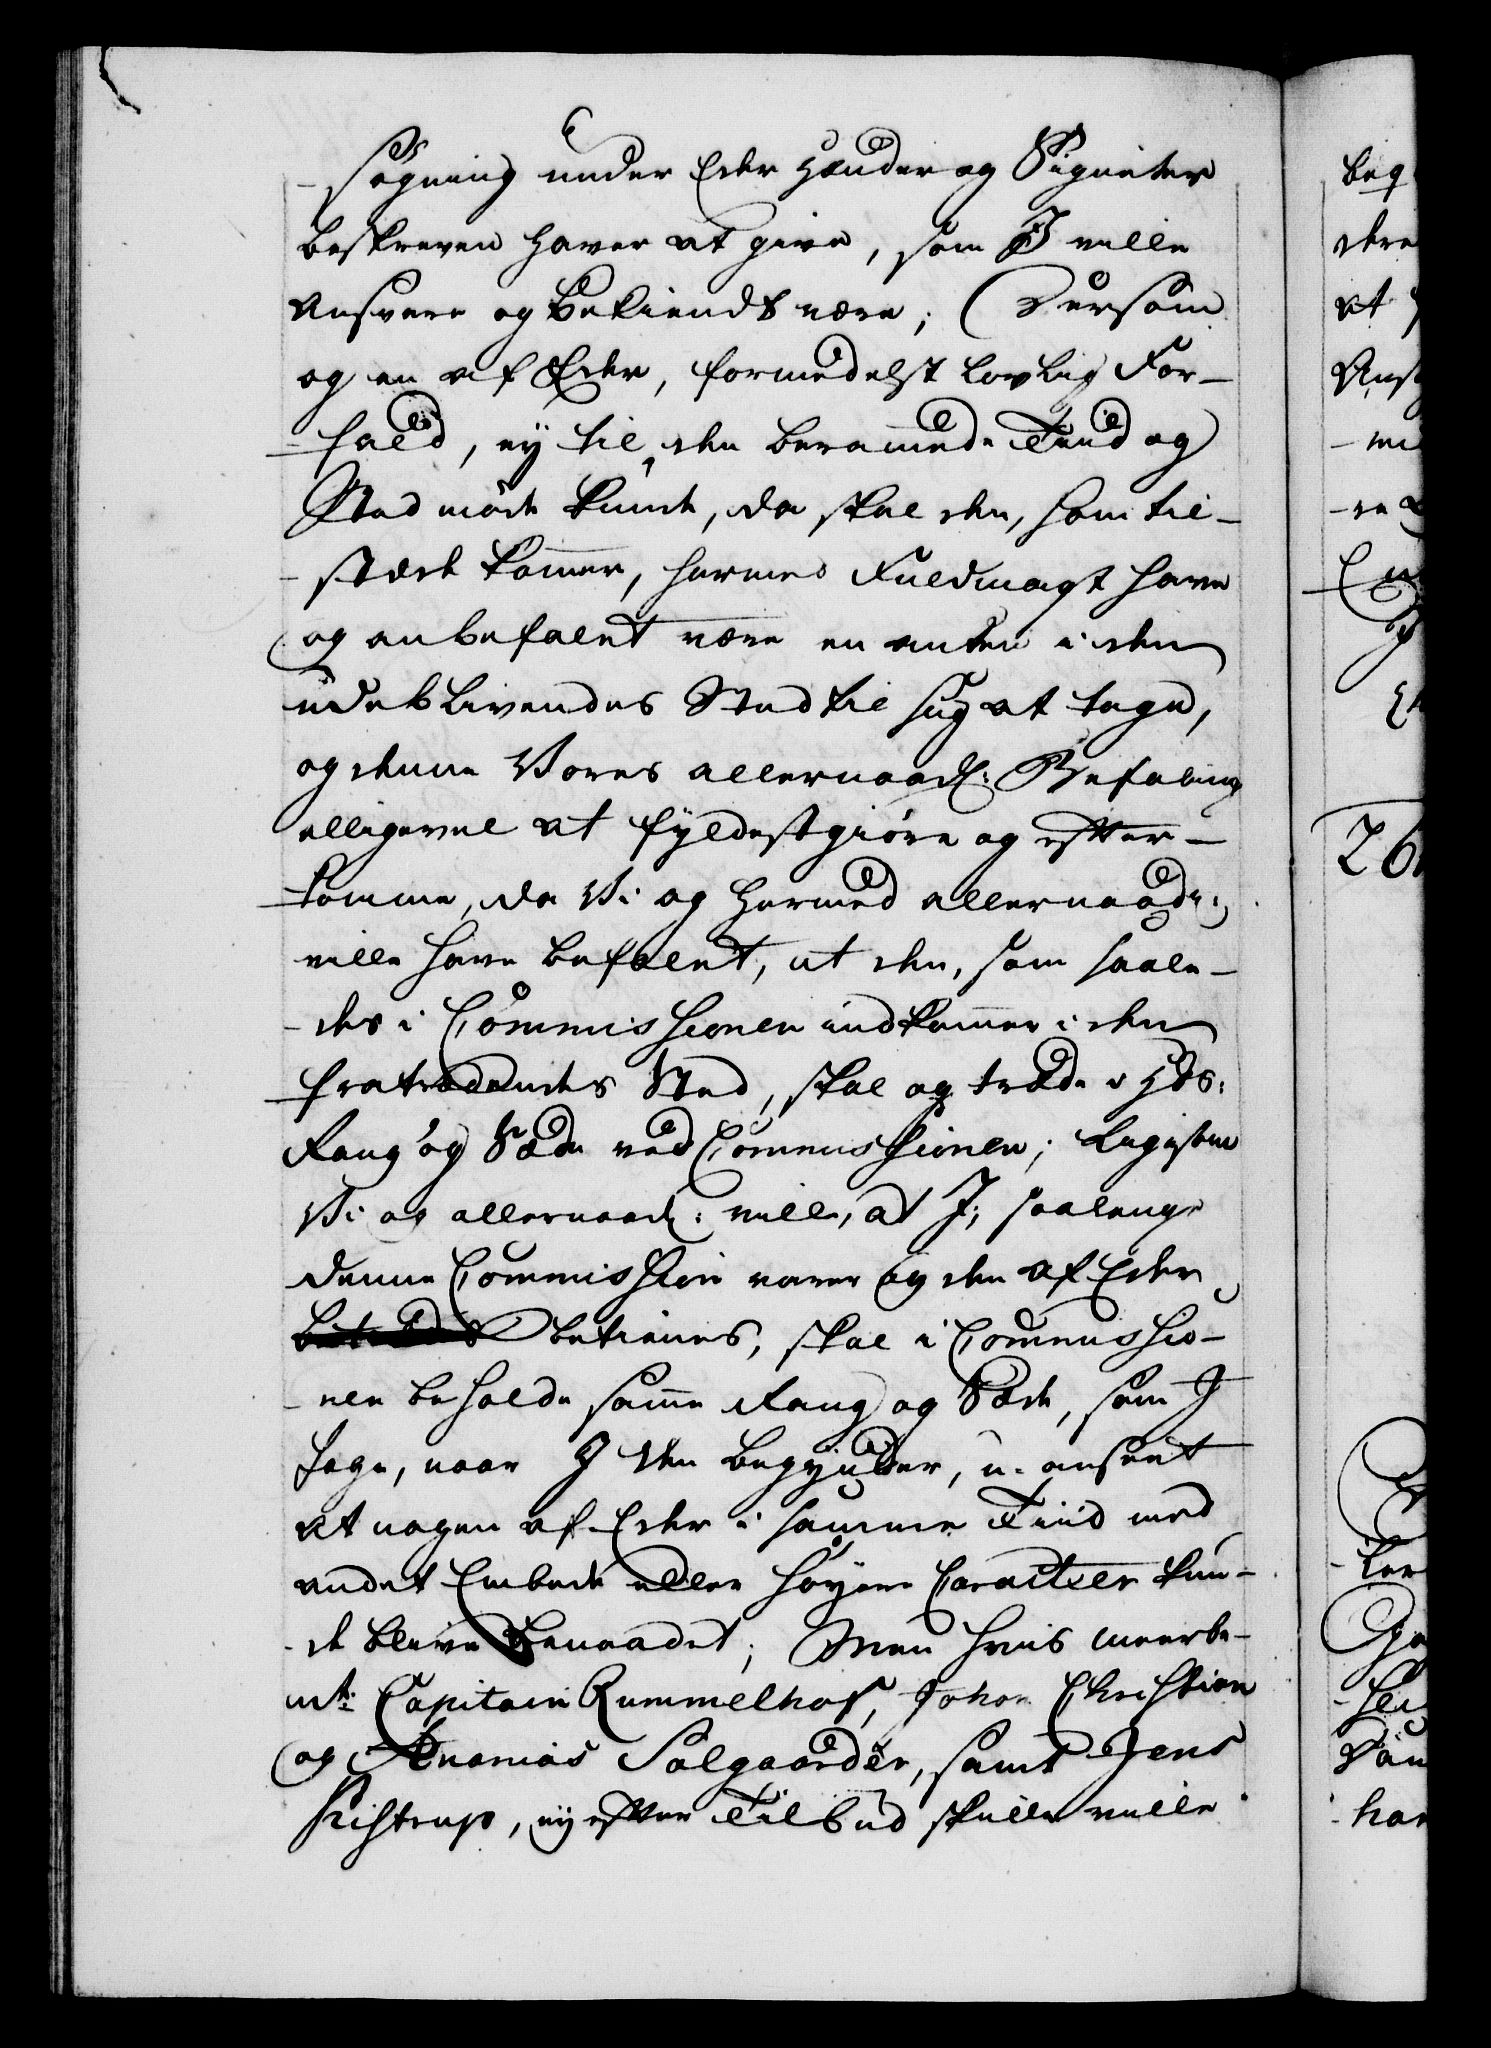 -søgning under Eder Hænder og Signeter
beskreven haver at give, som I ville
Ansvare og bekiendt være; Dersom
og en af Eder, formedelst lovlig For-
-fald, ey til den beramede Tiid og
Sted møde kunde, da skal den, som til-
-stæde kommer, hermed Fuldmagt have
og anbefalet være en anden i den
udeblivendes Sted til sig at tage,
og denne Vores allernaad: Befaling
alligevel at fyldestgiøre og efter-
-komme, da Vi og hermed allernaad:
ville have befalet, at den, som saale-
-des i Commissionen indkommer i den
fratrædendes Sted, skal og træde i H@s:
Rang og Sæde ved Commissionen; Ligesom
Vi og allernaad: ville, at I, saalenge
denne Commission varer og den af Eder
betienes, skal i Commissio-
-nen beholde samme Rang og Sæde, som I
tage, naar I den begynder, u-anseet
at nogen af Eder i samme Tiid med
andet Embede eller høyere Caracteer kun-
-de blive benaadet; Men hvis meerbe-
mt: Capitain Rummelhof, Johan Christian
og Ananias Solgaarder, samt Jens
Kistrup, ey efter Tilbud skulle ville
beq
dere
at
Ans
-mi
-re
26
-ler
-hei
-har